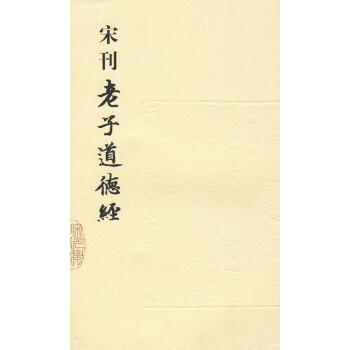 宋刊老子道德經